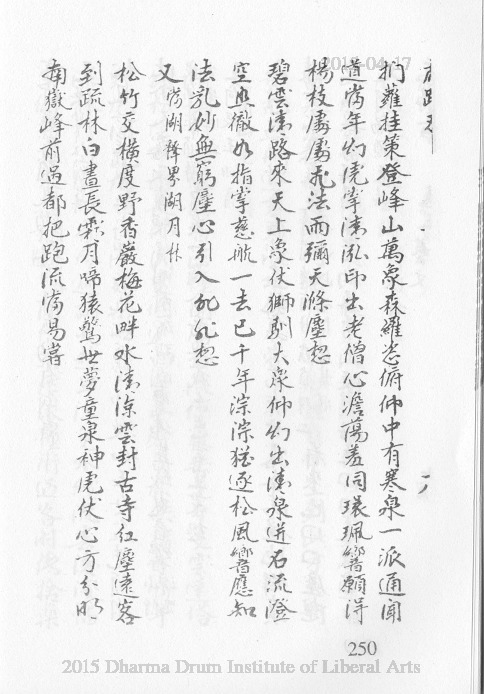 捫蘿挂策登峰山萬象森羅恣俯仰中有寒泉一派通聞
道當年灼虎掌清泓印出老僧心澹蕩羞同環珮響願得
楊枝處處飛法雨彌天滌塵想
碧雲清路來天上象伏獅馴大眾仰灼出清泉迸石流澄
空照徹如指掌慈航一去已千年淙淙猶逐松風響應知
法乳妙無窮塵心引入
又
松竹交橫度野香巖梅花畔水清涼雲封古寺紅塵遠客
到疏林白晝長霜月啼猿驚世夢童泉神虎伏心方分明
南嶽峰前過都把跑流當易嘗
250
2015 Dharma Drum Institute of Liberal Arts